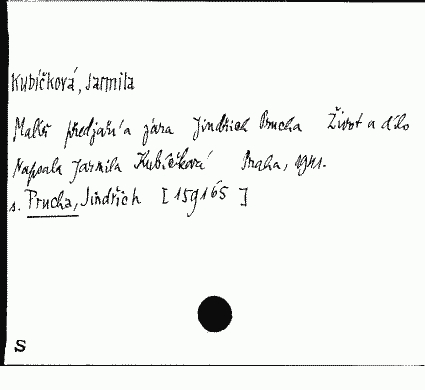 Kubíčková, Jarmila
Malíř předjaří a jara Jindřich Prucha Život a dílo
Napsala Jarmila Kubíčková Praha, 1941.
s. Prucha, Jindřich [159165]
S